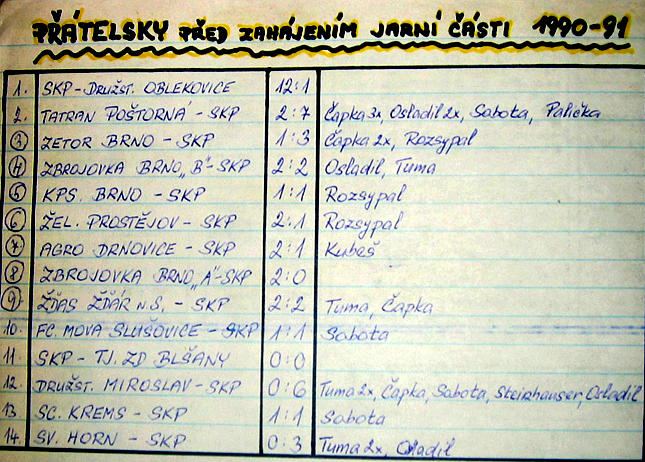 PŘÁTELSKY PŘED ZAHÁJENÍM JARNÍ ČÁSTI 1990-91
1. SKP-DRUŽST. OBLEKOVICE 12:1
2. TATRAN POŠTORNÁ - SKP 2:7 Čapka 3x, Osladil 2x, Sabota, Palička
3 ZETOR BRNO - SKP 1:3 Čapka 2x, Rozsypal
4 ZBROJOVKA BRNO „B"-SKP 2:2 Osladil, Tuma
5 KPS. BRNO - SKP 1:1 Rozsypal
6 ŽEL. PROSTĚJOV - SKP 2:1 Rozsypal
7 AGRO DRNOVICE - SKP 2:1 Kubeš
8 ZBROJOVKA BRNO „A"-SKP 2:0
9 ŽĎAS ŽĎÁR n.S. - SKP 2:2 Tuma, Čapka
10. FC. MOVA SLUŠOVICE - SKP 1:1 Sabota
11. SKP - TJ. ZD BLŠANY 0:0
12. DRUŽST. MIROSLAV - SKP 0:6 Tuma 2x, Čapka, Sabota, Steinhauser, Osladil
13. SC. KREMS - SKP 1:1 Sabota
14. SV. HORN - SKP 0:3 Tuma 2x, Osladil